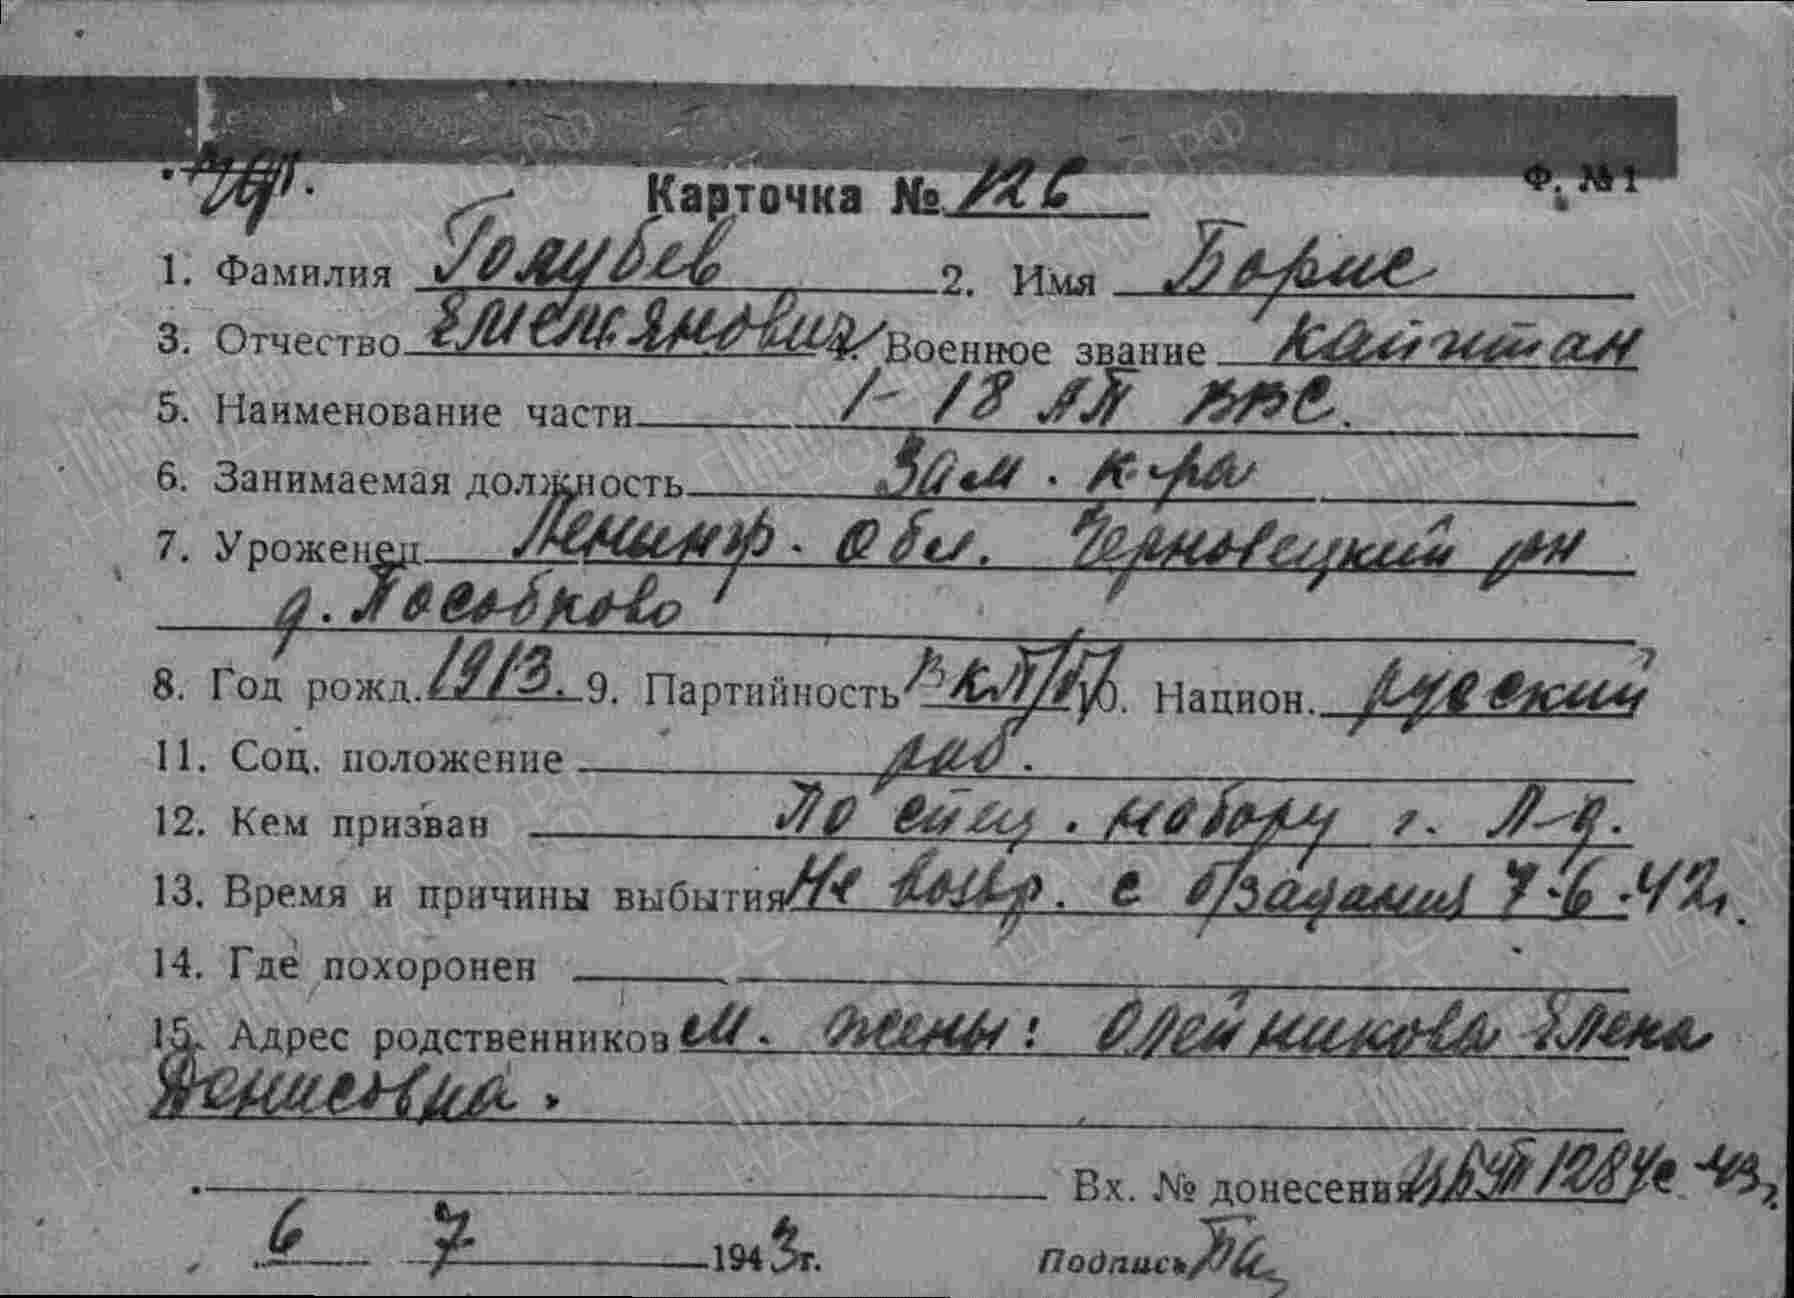 Ф. №1
Карточка № 126
1. Фамилия Голубев 2. Имя Борис
3. Отчество Емельянович 4. Военное звание капитан
5. Наименование части 1-18 АП ВВС.
6. Занимаемая должность зам. к-ра
7. Уроженец Ленингр. обл. Черновецкий рн
д. Пособково
8. Год рожд. 1913. 9. Партийность ВКП/б/ 10. Национ. русский
11. Соц. положение раб.
12. Кем призван По спец. набору г. Л-д.
13. Время и причины выбытия Не возвр. с б/задания 7-6-42г.
14. Где похоронен
15. Адрес родственников м. жены: Олейникова Елена
Денисовна.
Вх. № донесения 1284с 43г.
6 7 1943г. Подпись